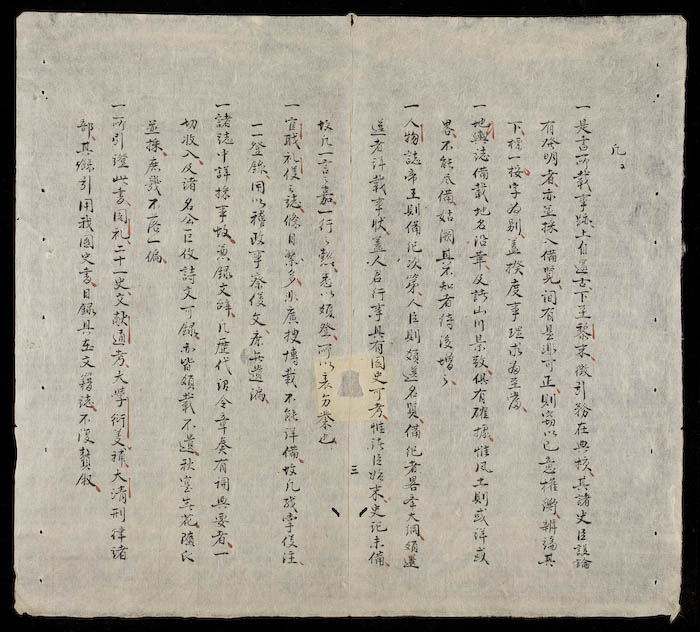 凡例
一是書所載事跡上自邃古下至黎末徵引務在典核其諸史臣議論
有發明者亦並採入備覽間有是非可正則竊以己意權衡辨論其
下標一按字為別盖揆度事理求為至當
一地輿誌備載地名沿革及諸山川景致俱有確據惟風土則或詳或
畧不能尽備姑闕其不知者待後增之
一人物誌帝王則備紀次第人臣則頗選名賢備紀者畧舉大綱頗選
造者詳載事狀盖人君行事具有國史可考惟諸臣始末史記未備
故凡一言之嘉一行之懿悉以頗登所以表勿棄也
一官職礼仪之誌條目繁多非廣搜博載不能詳備故凡殘字仪注
一一登錄用以稽政事察仪文庶無遺漏
一諸誌中詳採事故兼錄文辞凡歷代詔令章奏有補典要者一
切收入及諸名公臣俊詩文可錄亦皆頗載不遺秋室与花隨氏
並採庶幾不落一偏
一所引證此書周礼二十一史文献通考大學衍義補大清刑律諸
部其餘引用我國史書目錄具在文籍誌不復贅叙
三